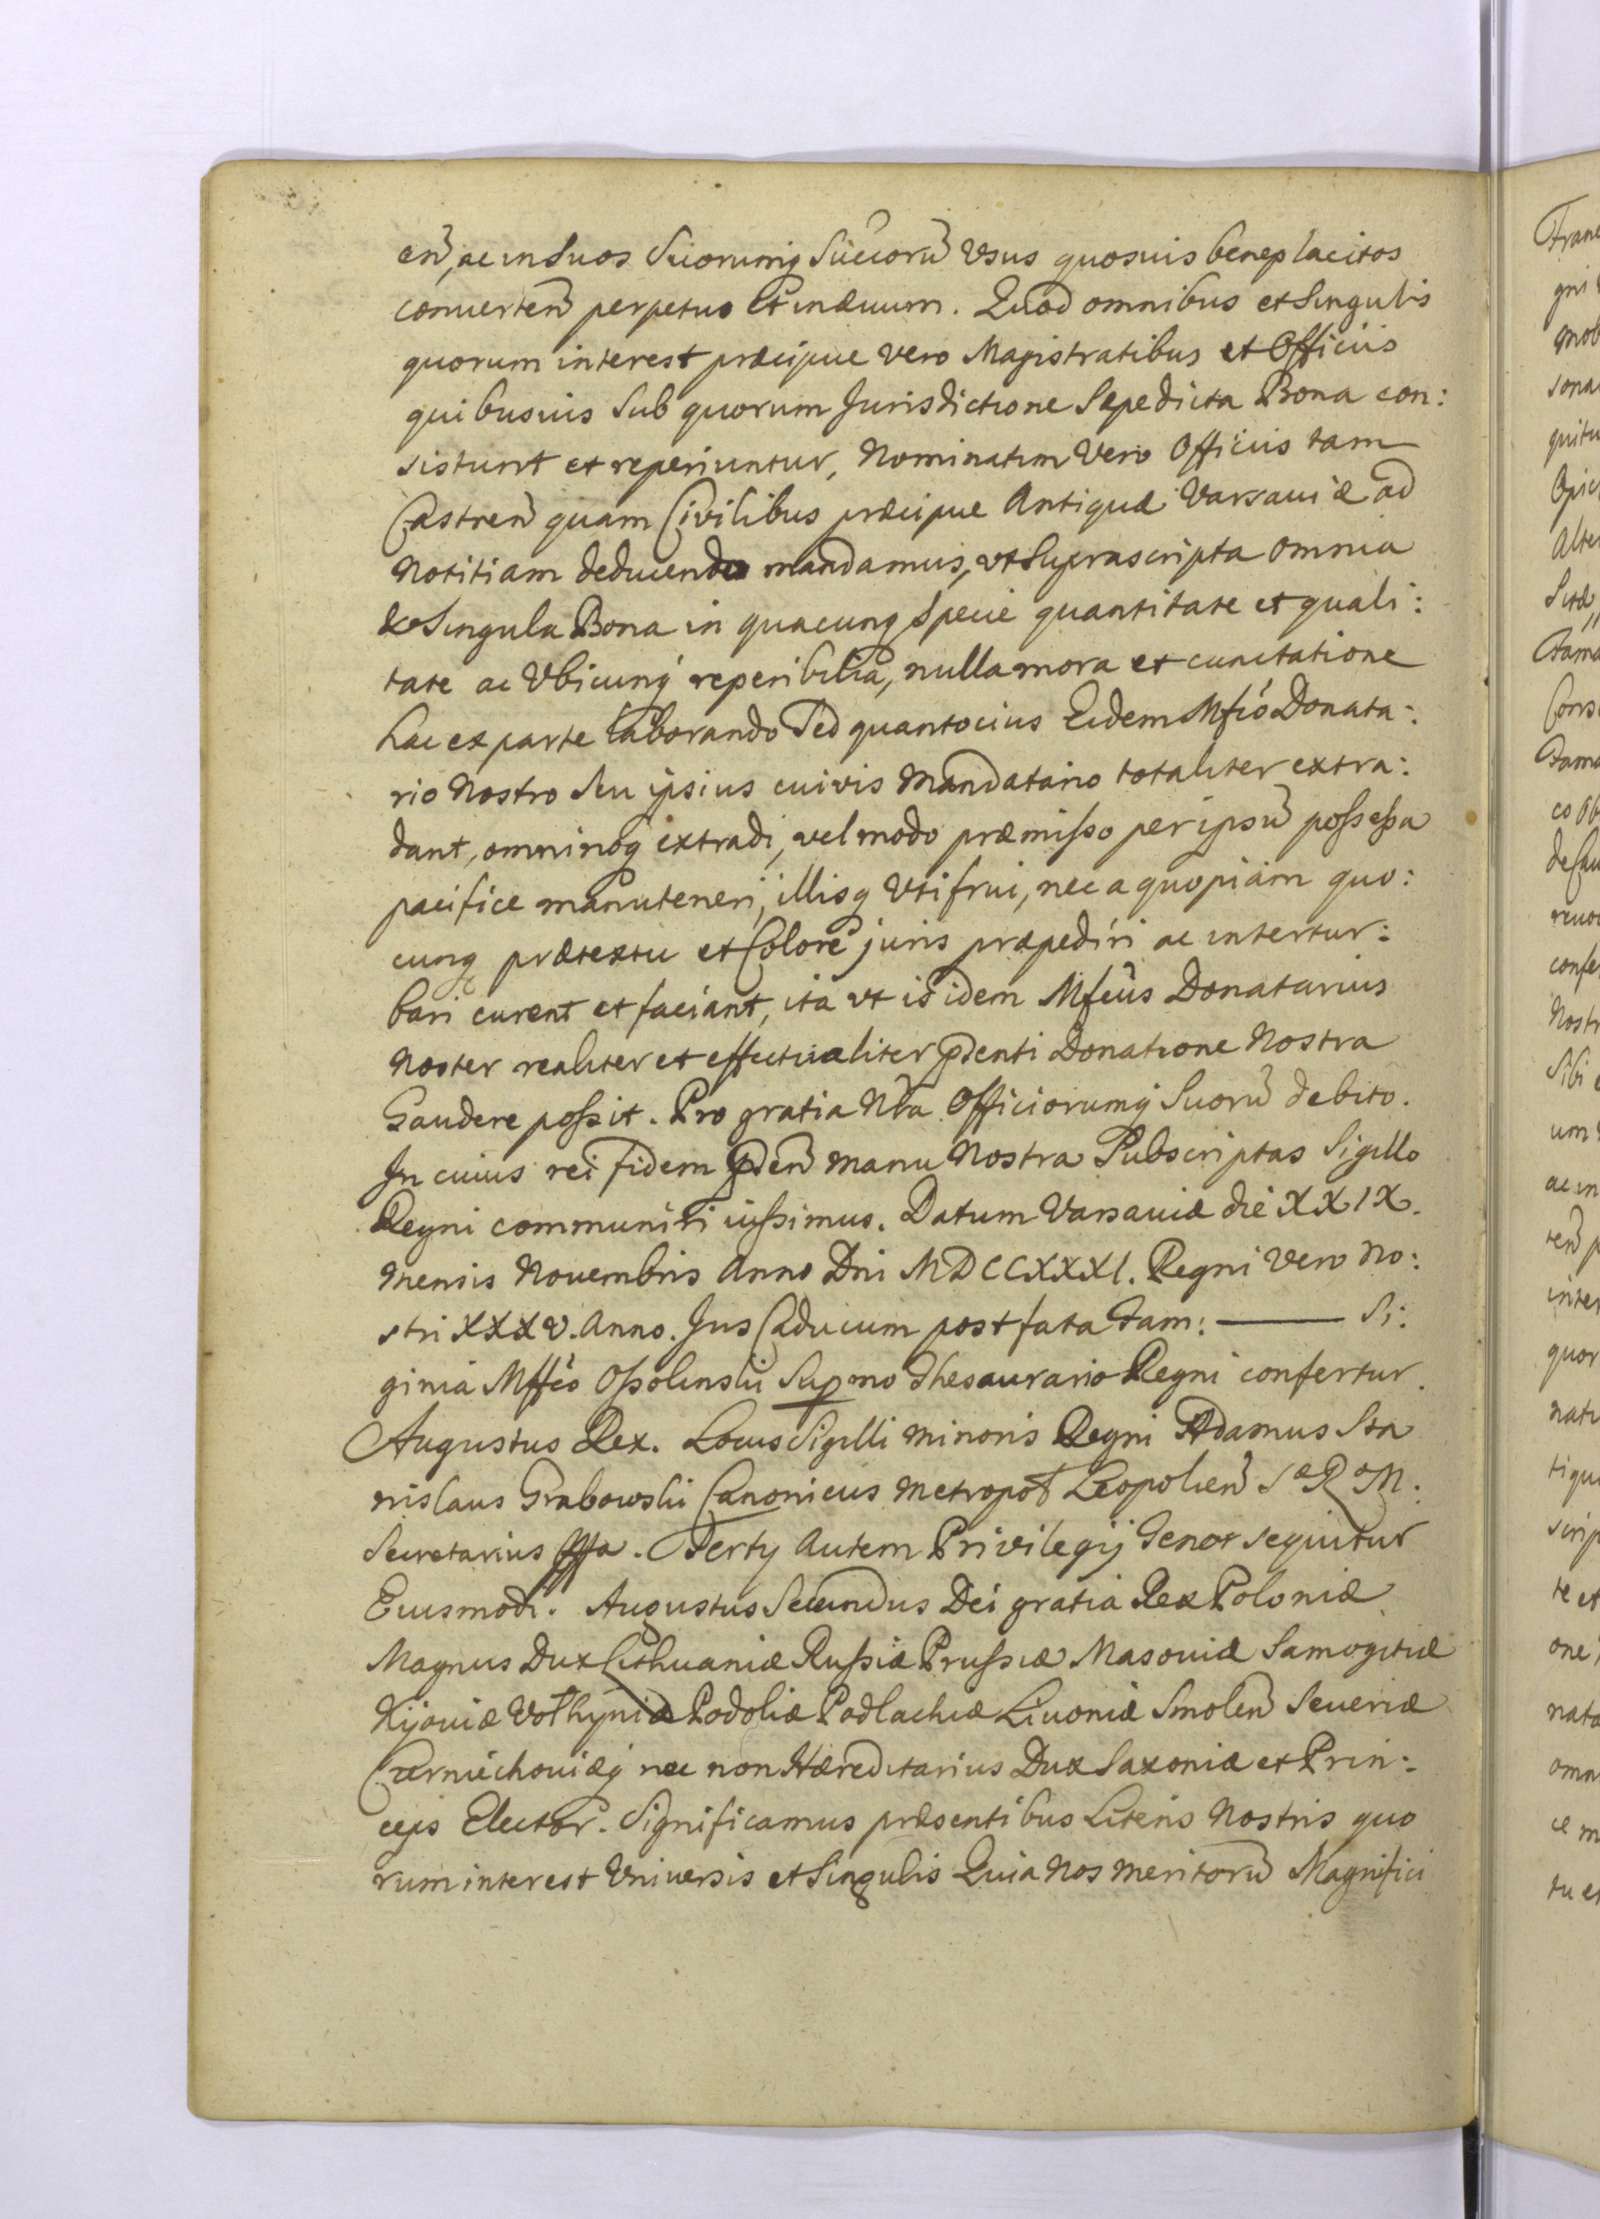 eñ, ac in Suos Suorumq̃ Succoru͂ Vsus quosuis beneplacitos
conuerteñ perpetuo et in æuum. Quod omnibus et Singulis
quorum interest præcipue vero Magistratibus et Officiis
quibusuis Sub quorum Jurisdictione Sæpedicta Bona con:
sistunt et reperiuntur, Nominatim Vero Officiis tam
Castreñ quam Civilibus præcipue Antiquæ Varsauiæ ad
Notitiam deducendo mandamus, vt Suprascripta omnia
& Singula Bona in quacunq̃ Specie quantitate et quali:
tate ac Vbicunq̃ reperibilia, nulla mora et cunctatione
hac ex parte laborando Sed quantocius Eidem Mfcó Donata:
rio Nostro Seu ipsius cuivis Mandatario totaliter extra:
dant, omninoq̃ extradi, vel modo præmisso per ipsu͂ possessa
pacifice manuteneri, illisq̃ Vti frui, nec a quopiam quo:
cunq̃ prætextu et Colore juris præpediri ac intertur:
bari curent et faciant, ita vt is idem Mfcûs Donatarius
Noster realiter et effectualiter p̃denti Donatione Nostra
Gaudere possit. Pro gratia Nr̃a Officiorumq̃ Suoru͂ debito.
In cuius rei fidem p̃deñ manu Nostra Subscriptas Sigillo
Regni communiri iussimus. Datum Varsauiæ die XXIX.
Mensis Nouembris Anno Dni MDCCXXXI. Regni Vero No:
stri XXXV. Anno. Jus Caducum post fata Fam: ——— Si:
ginia Mffcó Ossolinskii Supmo Thesaurario Regni confertur.
Augustus Rex. Locus Sigilli minoris Regni Adamus Sta
nislaus Grabowski Canonicus Metropol Leopolieñ S R M.
Secretarius mppa. Terty Autem Privilegij Tenor sequitur
Eiusmodi. Augustus Secundus Dei gratia Rex Poloniæ
Magnus Dux Lithuaniæ Russiæ Prussiæ Masouiæ Samogitiæ
Kijouiæ Volhyniæ Podoliæ Podlachiæ Liuoniæ Smoleñ Seueriæ
Czerniechouiæq̃ nec non Hæreditarius Dux Saxoniæ et Prin:
ceps Elector. Significamus præsentibus Literis Nostris quo
rum interest Vniuersis et Singulis Quia Nos meritoru͂ Magnifici